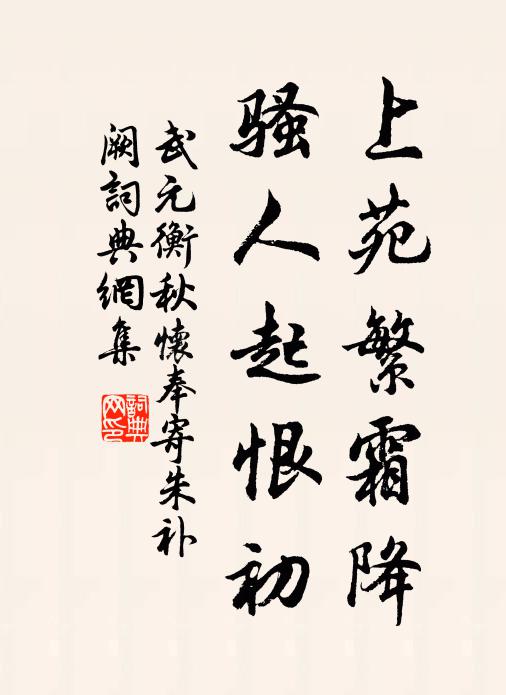 上苑繁霜降
骚人起恨初
武元衡秋懷奉寄朱补
阙詞典網集
詞典
网印